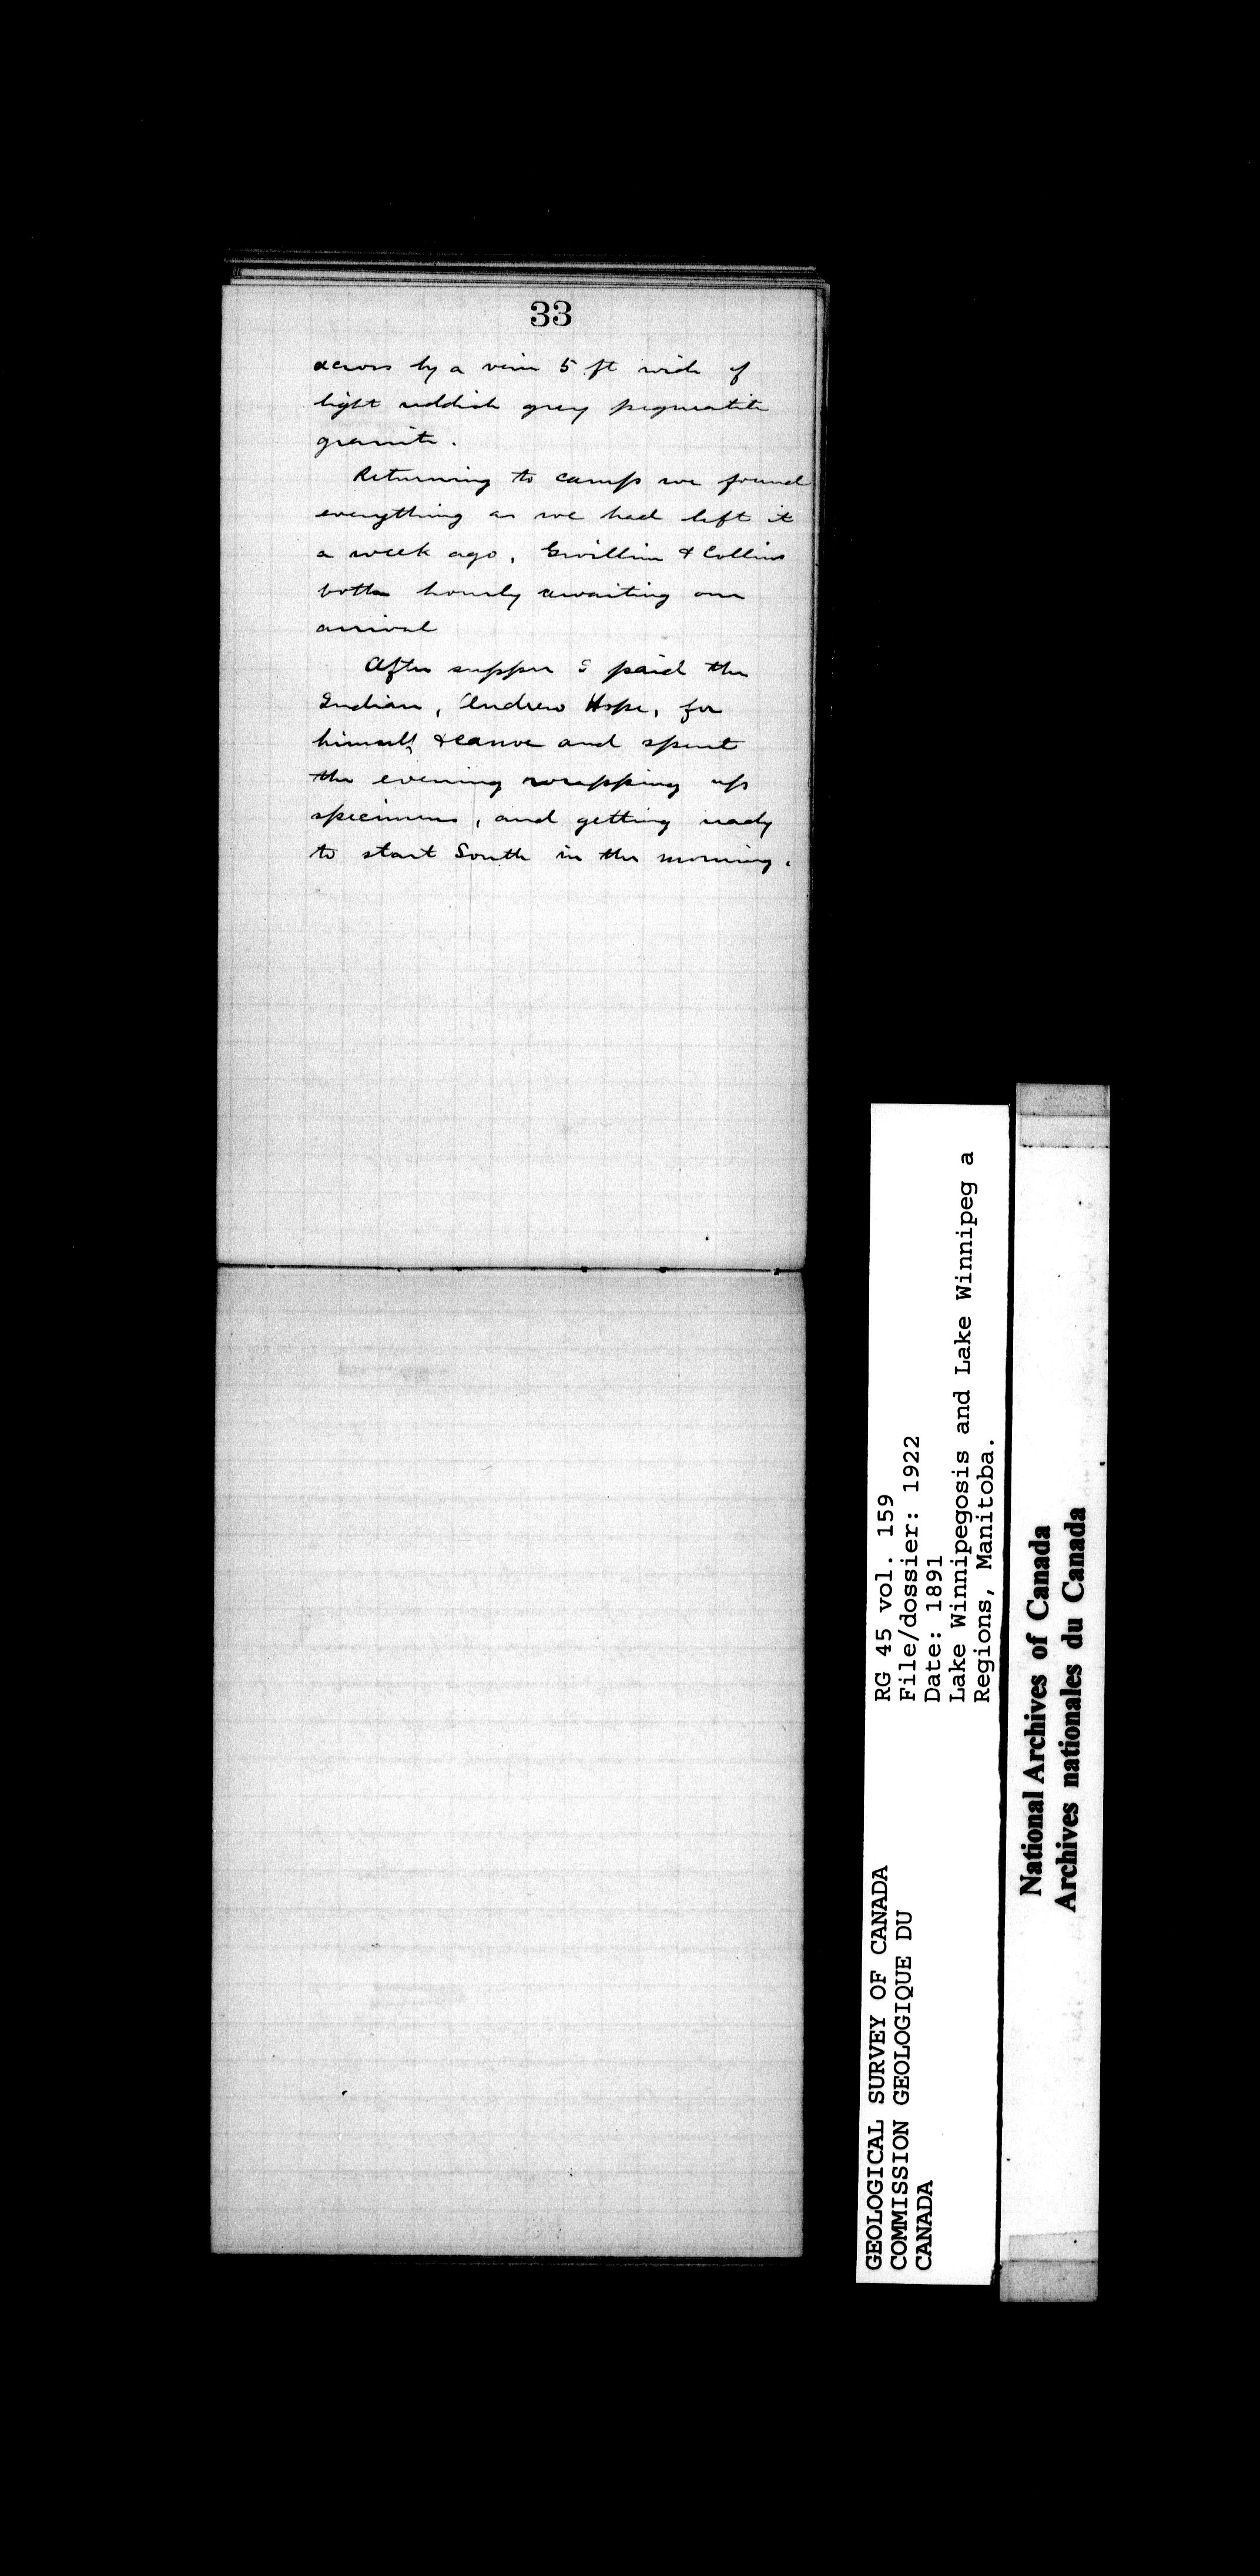 33
across by a vein 5 ft wide of
light reddish grey pegmatite
granite.
Returning to camp we found
everything as we had left it
a week ago, Gwillim & Collins
both hourly awaiting our
arrival
After supper I paid the
Indian, Andrew Hope, for
himself & canoe and spent
the evening wrapping up
specimens, and getting ready
to start South in the morning.
GEOLOGICAL SURVEY OF CANADA
COMMISSION GEOLOGIQUE DU
CANADA
RG 45 vol. 159
File/dossier: 1922
Date: 1891
Lake Winnipegosis and Lake Winnipeg a
Regions, Manitoba.
National Archives of Canada
Archives nationales du Canada